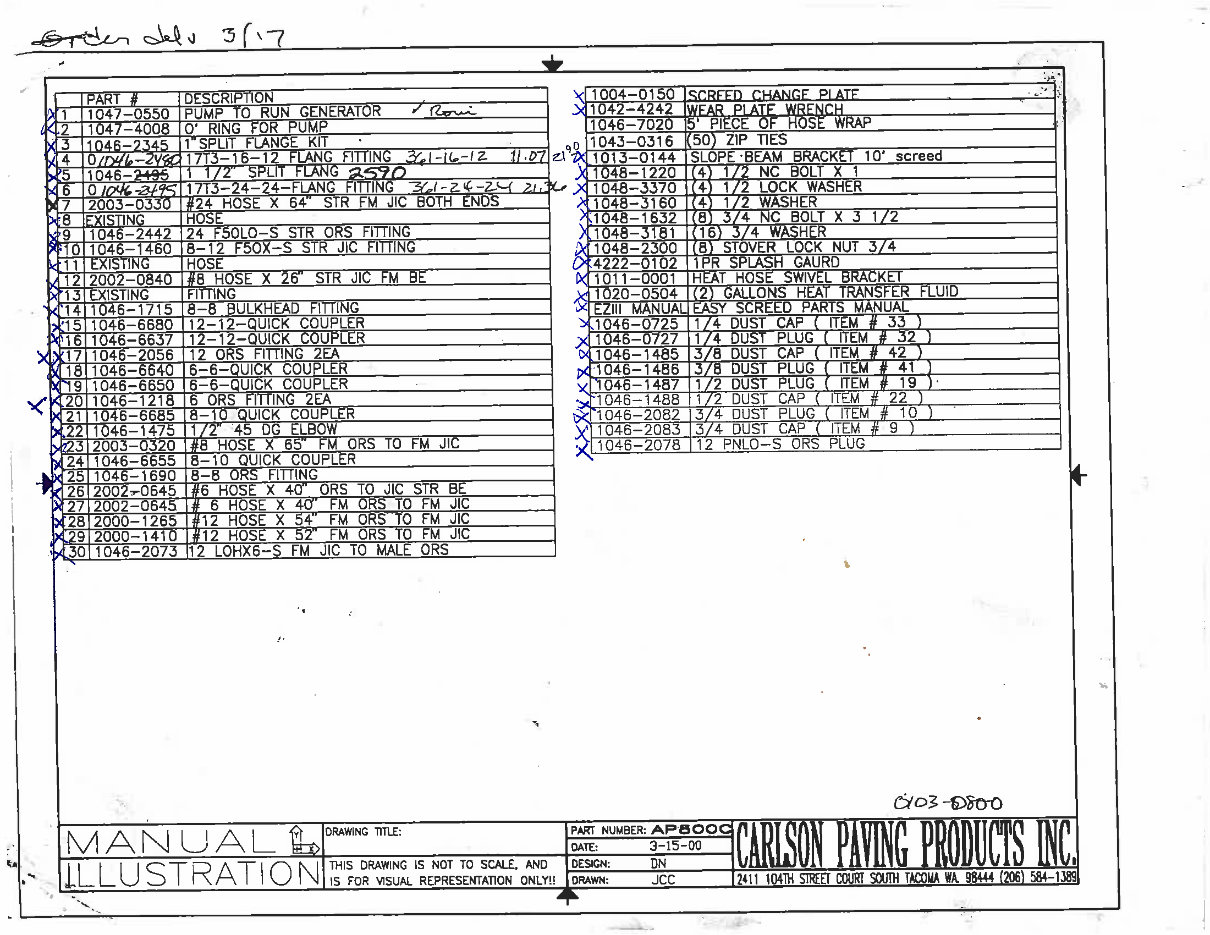 Order del v 3/17
PART # DESCRIPTION
1 1047-0550 PUMP TO RUN GENERATOR ✓ Roni
2 1047-4008 O' RING FOR PUMP
3 1046-2345 1" SPLIT FLANGE KIT
4 0 1046-2480 17T3-16-12 FLANG FITTING 361-16-12 11.07
5 1046-2495 1 1/2" SPLIT FLANG 2590
6 0 1046-2495 17T3-24-24-FLANG FITTING 361-24-24 21.36
7 2003-0330 #24 HOSE X 64" STR FM JIC BOTH ENDS
8 EXISTING HOSE
9 1046-2442 24 F50LO-S STR ORS FITTING
10 1046-1460 8-12 F50X-S STR JIC FITTING
11 EXISTING HOSE
12 2002-0840 #8 HOSE X 26" STR JIC FM BE
13 EXISTING FITTING
14 1046-1715 8-8 BULKHEAD FITTING
15 1046-6680 12-12-QUICK COUPLER
16 1046-6637 12-12-QUICK COUPLER
X 17 1046-2056 12 ORS FITTING 2EA
18 1046-6640 6-6-QUICK COUPLER
19 1046-6650 6-6-QUICK COUPLER
X 20 1046-1218 6 ORS FITTING 2EA
21 1046-6685 8-10 QUICK COUPLER
22 1046-1475 1/2" 45 DG ELBOW
23 2003-0320 #8 HOSE X 65" FM ORS TO FM JIC
24 1046-6655 8-10 QUICK COUPLER
25 1046-1690 8-8 ORS FITTING
26 2002-0645 #6 HOSE X 40" ORS TO JIC STR BE
27 2002-0645 # 6 HOSE X 40" FM ORS TO FM JIC
28 2000-1265 #12 HOSE X 54" FM ORS TO FM JIC
29 2000-1410 #12 HOSE X 52" FM ORS TO FM JIC
30 1046-2073 12 LOHX6-S FM JIC TO MALE ORS
1004-0150 SCREED CHANGE PLATE
1042-4242 WEAR PLATE WRENCH
1046-7020 5' PIECE OF HOSE WRAP
1043-0316 (50) ZIP TIES
2190 1013-0144 SLOPE BEAM BRACKET 10' screed
1048-1220 (4) 1/2 NC BOLT X 1
1048-3370 (4) 1/2 LOCK WASHER
1048-3160 (4) 1/2 WASHER
1048-1632 (8) 3/4 NC BOLT X 3 1/2
1048-3181 (16) 3/4 WASHER
1048-2300 (8) STOVER LOCK NUT 3/4
4222-0102 1PR SPLASH GAURD
1011-0001 HEAT HOSE SWIVEL BRACKET
1020-0504 (2) GALLONS HEAT TRANSFER FLUID
EZIII MANUAL EASY SCREED PARTS MANUAL
1046-0725 1/4 DUST CAP ( ITEM # 33 )
1046-0727 1/4 DUST PLUG ( ITEM # 32 )
1046-1485 3/8 DUST CAP ( ITEM # 42 )
1046-1486 3/8 DUST PLUG ( ITEM # 41 )
1046-1487 1/2 DUST PLUG ( ITEM # 19 )
1046-1488 1/2 DUST CAP ( ITEM # 22 )
1046-2082 3/4 DUST PLUG ( ITEM # 10 )
1046-2083 3/4 DUST CAP ( ITEM # 9 )
1046-2078 12 PNLO-S ORS PLUG
0103-0800
MANUAL ILLUSTRATION
Y X
DRAWING TITLE:
THIS DRAWING IS NOT TO SCALE, AND
IS FOR VISUAL REPRESENTATION ONLY!!
PART NUMBER: AP800C
DATE: 3-15-00
DESIGN: DN
DRAWN: JCC
CARLSON PAVING PRODUCTS INC.
2411 104TH STREET COURT SOUTH TACOMA WA. 98444 (206) 584-1389